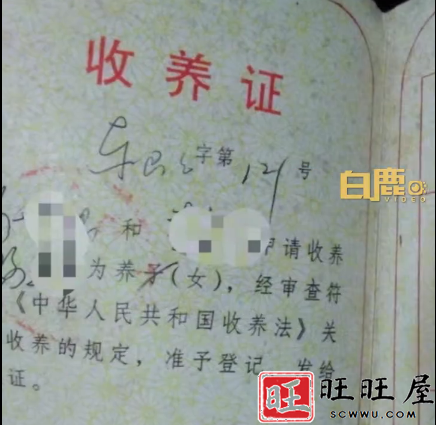 收养证
字第 121 号
白鹿
VIDEO
和
申请收养
为养子(女)，经审查符
《中华人民共和国收养法》关
收养的规定，准予登记 发给
证。
旺 旺旺屋
SCWWU.COM